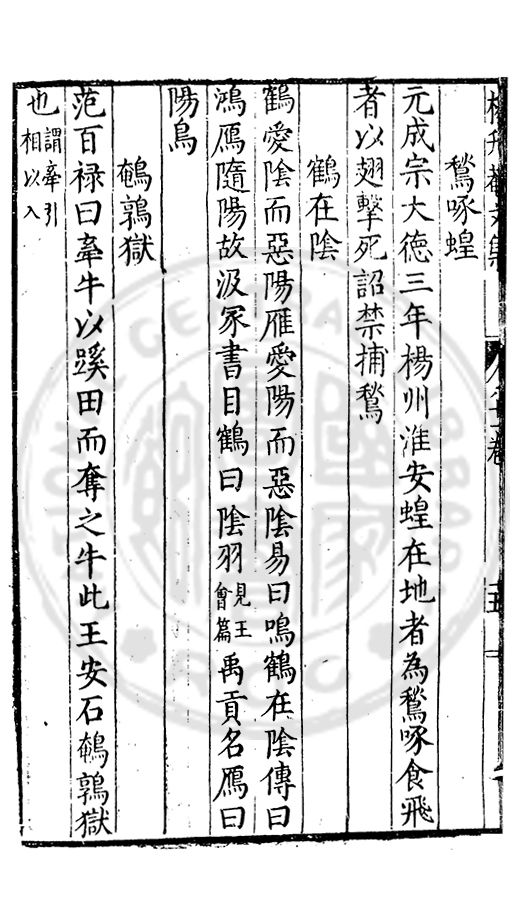 鶖啄蝗
元成宗大德三年楊州淮安蝗在地者為鶖啄食飛
者以翅擊死詔禁捕鶖
鶴在陰
鶴愛陰而惡陽雁愛陽而惡陰易曰鳴鶴在陰傳曰
鴻鴈隨陽故汲冢書目鶴曰陰羽見王會篇禹貢名鴈曰
陽鳥
鵪鶉獄
范百禄曰牽牛以蹊田而奪之牛此王安石鵪鶉獄
也謂牽引相以入